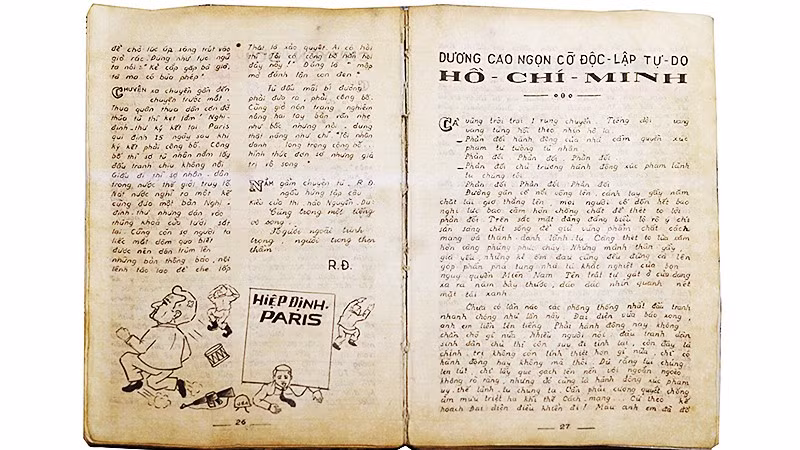 để chờ lúc úp, sáng trút vào
giỏ rác. Đúng như tục ngữ
ta nói: "Kẻ cắp gặp bà già,
tà ma có bùa phép".
CHUYỆN xa chuyện gần đến
chuyện trước mắt.
Thưa quần thưa dân còn đó
nghị-
định-thư ký kết tại Paris
qui định 15 ngày sau khi
ký kết phải công bố. Công
bố thì sợ tù nhân nắm lấy
đấu tranh chịu không nổi.
Giấu đi thì sợ nhân-dân
trong nước thế giới truy lỗi.
Hai nước nghĩ ra một kế
cũng đưa một bản Nghị-
định-thư nhưng dán vào
thùng khoá cửa lưới sắt
lại. Cũng còn sợ người ta
liếc mắt dòm qua biết
được nên dán trùm lên
những bản thông báo, nội
lệnh tào lao để che lấp
Thật là xảo quyệt. Ai có hỏi
thì "Tôi có công bố hẳn hoi
đấy này!" Đúng là "mập
mờ đánh lận con đen"
Tù đấu mãi bí đường
phải đưa ra, phải công bố.
Cũng giở nón trang nghiêm
nâng hai tay bản văn nhẹ
như bấc nhưng nói dung
mặt nặng như chì "Tôi nhân
danh long trọng công bố
hình thức đơn sơ nhưng giá
trị rõ song".
NẰM gẫm chuyện tù, R.Đ.
ngẫu hứng lắp câu
Kiều của thi hào Nguyễn Du:
Cùng trong một tiếng
tơ song.
Người ngoài trình
trọng người trong then
thầm
R.Đ.
HIỆP ĐỊNH
PARIS
TNT
USA
26
DƯƠNG CAO NGỌN CỜ ĐỘC-LẬP TỰ-DO
HỒ-CHÍ-MINH
CẢ vùng trời trại I rung chuyển. Tiếng dội vang
vang từng hồi theo nhịp hô la
_ Phản đối hành động của nhà cầm quyền xúc
phạm tư tưởng tù nhân
Phản đối Phản đối Phản đối
_ Phản đối chủ trương hành động xúc phạm lãnh
tụ chúng tôi
Phản đối Phản đối Phản đối
Đường gân cổ nổi cộng lên, cánh tay gầy nắm
chặt lại giơ thẳng lên, mọi người cố dồn hết bao
nghị lực bao căm hờn chống chất để thét to lời
phản đối. Trên sắc mặt đằng đằng biểu lộ rõ ý chí
sẵn sàng chết sống để giữ vững phẩm chất cách
mạng và thanh danh lãnh tụ. Càng thét to lửa căm
hờn càng phừng phừng cháy. Những mảnh thân gầy
già yếu, những kẻ ốm đau cũng đều đứng cả lên
góp phần phá tung nhà tù khắc nghiệt của bọn
nguỵ quyền Miền Nam. Tên trật tự gát ở cửa đang
xa ra nằm bảy thước, dáo dác nhìn quanh nét
mặt tái xanh.
Chưa có lần nào các phòng thống nhất đấu tranh
nhanh chóng như lần này. Đại diện vừa báo xong,
anh em liền lên tiếng. Phải hành động ngay không
chần chờ gì nữa. Nhiều người nói đấu tranh dân
sinh dân chủ thì còn suy đi tính lại, còn đây là
chính trị không còn tính thiệt hơn gì nữa, chỉ có
hành động hay không mà thôi. Dù rằng tụi chúng
lén lút, chỉ lấy que gạch lên nền với ngoằn ngoèo
không rõ ràng, nhưng đó cũng là hành động xúc phạm
uy thế lãnh tụ chúng ta. Cần phải cương quyết chống
âm mưu triệt hạ khí thế Cách-mạng. Cứ theo kế
hoạch Đại diện điều khiển đi! Máu anh em đã đổ
27